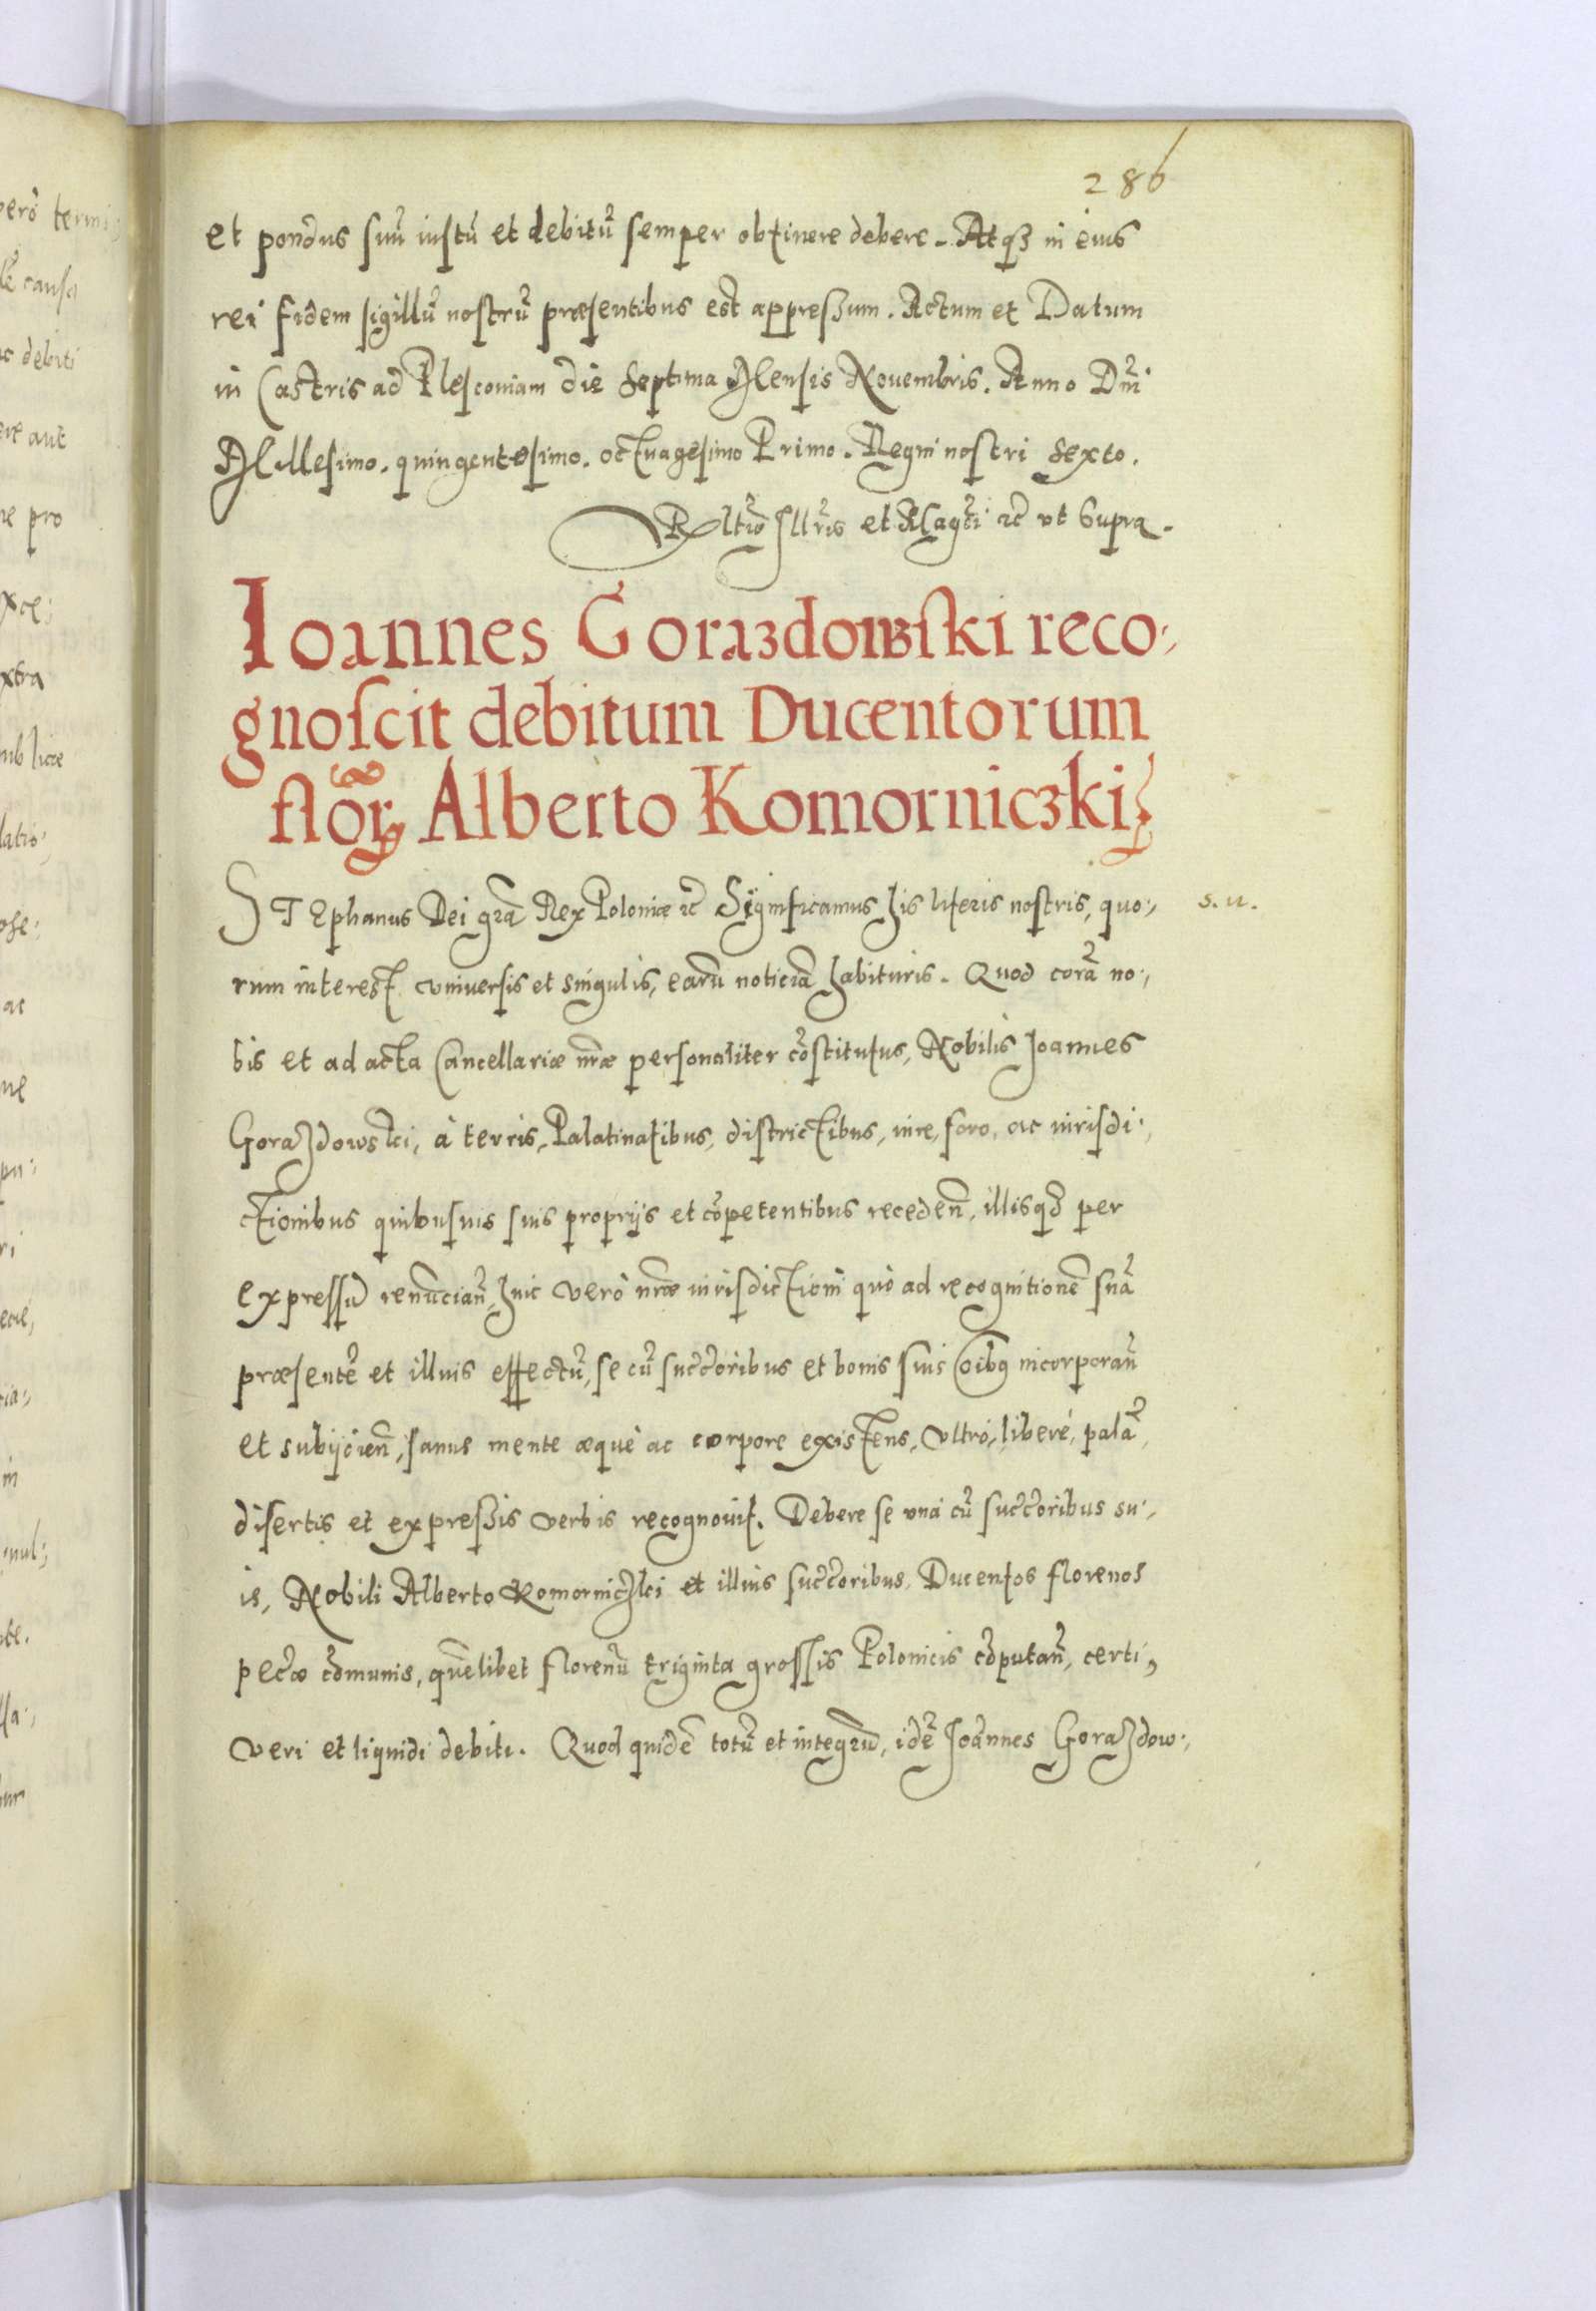 286
et pondus suū iustū et debitū semper obtinere debere. Atqꝫ in eius
rei fidem sigillū nostrū præsentibus est appressum. Actum et Datum
in Castris ad Plesconiam die Septima Mensis Nouembris. Anno Dni
Millesimo. quingentesimo. octuagesimo Primo. Regni nostri Sexto.
Rltio Illris et Magci ꝛc vt Supra.
Ioannes Gorazdowski reco:,
gnoscit debitum Ducentorum
flor̃ Alberto Komorniczki
STEphanus Dei gra Rex Poloniæ ꝛc Significamus his literis nostris, quo:,
s. u.
rum interest vniuersis et singulis, earū noticiā habituris. Quod corā no:,
bis et ad acta Cancellariæ nræ personaliter cōstitutus, Nobilis Joannes
Gorazdowski, à terris, Palatinatibus, districtibus, iure, foro, ac iurisdi:,
ctionibus quibusuis suis proprijs et cōpetentibus receden̄, illisqꝫ per
expressū renuncian̄, huic verò nræ iurisdictioni quò ad recognitionē suā
præsentē et illius effectū, se cū succoribus et bonis suis oibꝯ incorporan̄
et subijcien̄, sanus mente æquè ac corpore existens, vltrò, liberè, palā,
disertis et expressis verbis recognouit. Debere se vnà cū succoribus su:,
is, Nobili Alberto Komorniczki et illius succoribus, Ducentos florenos
pecæ cōmunis, quēlibet florenū triginta grossis Polonicis cōputan̄, certi,
veri et liquidi debiti. Quod quidē totū et integrū, idē Joannes Gorazdow:,